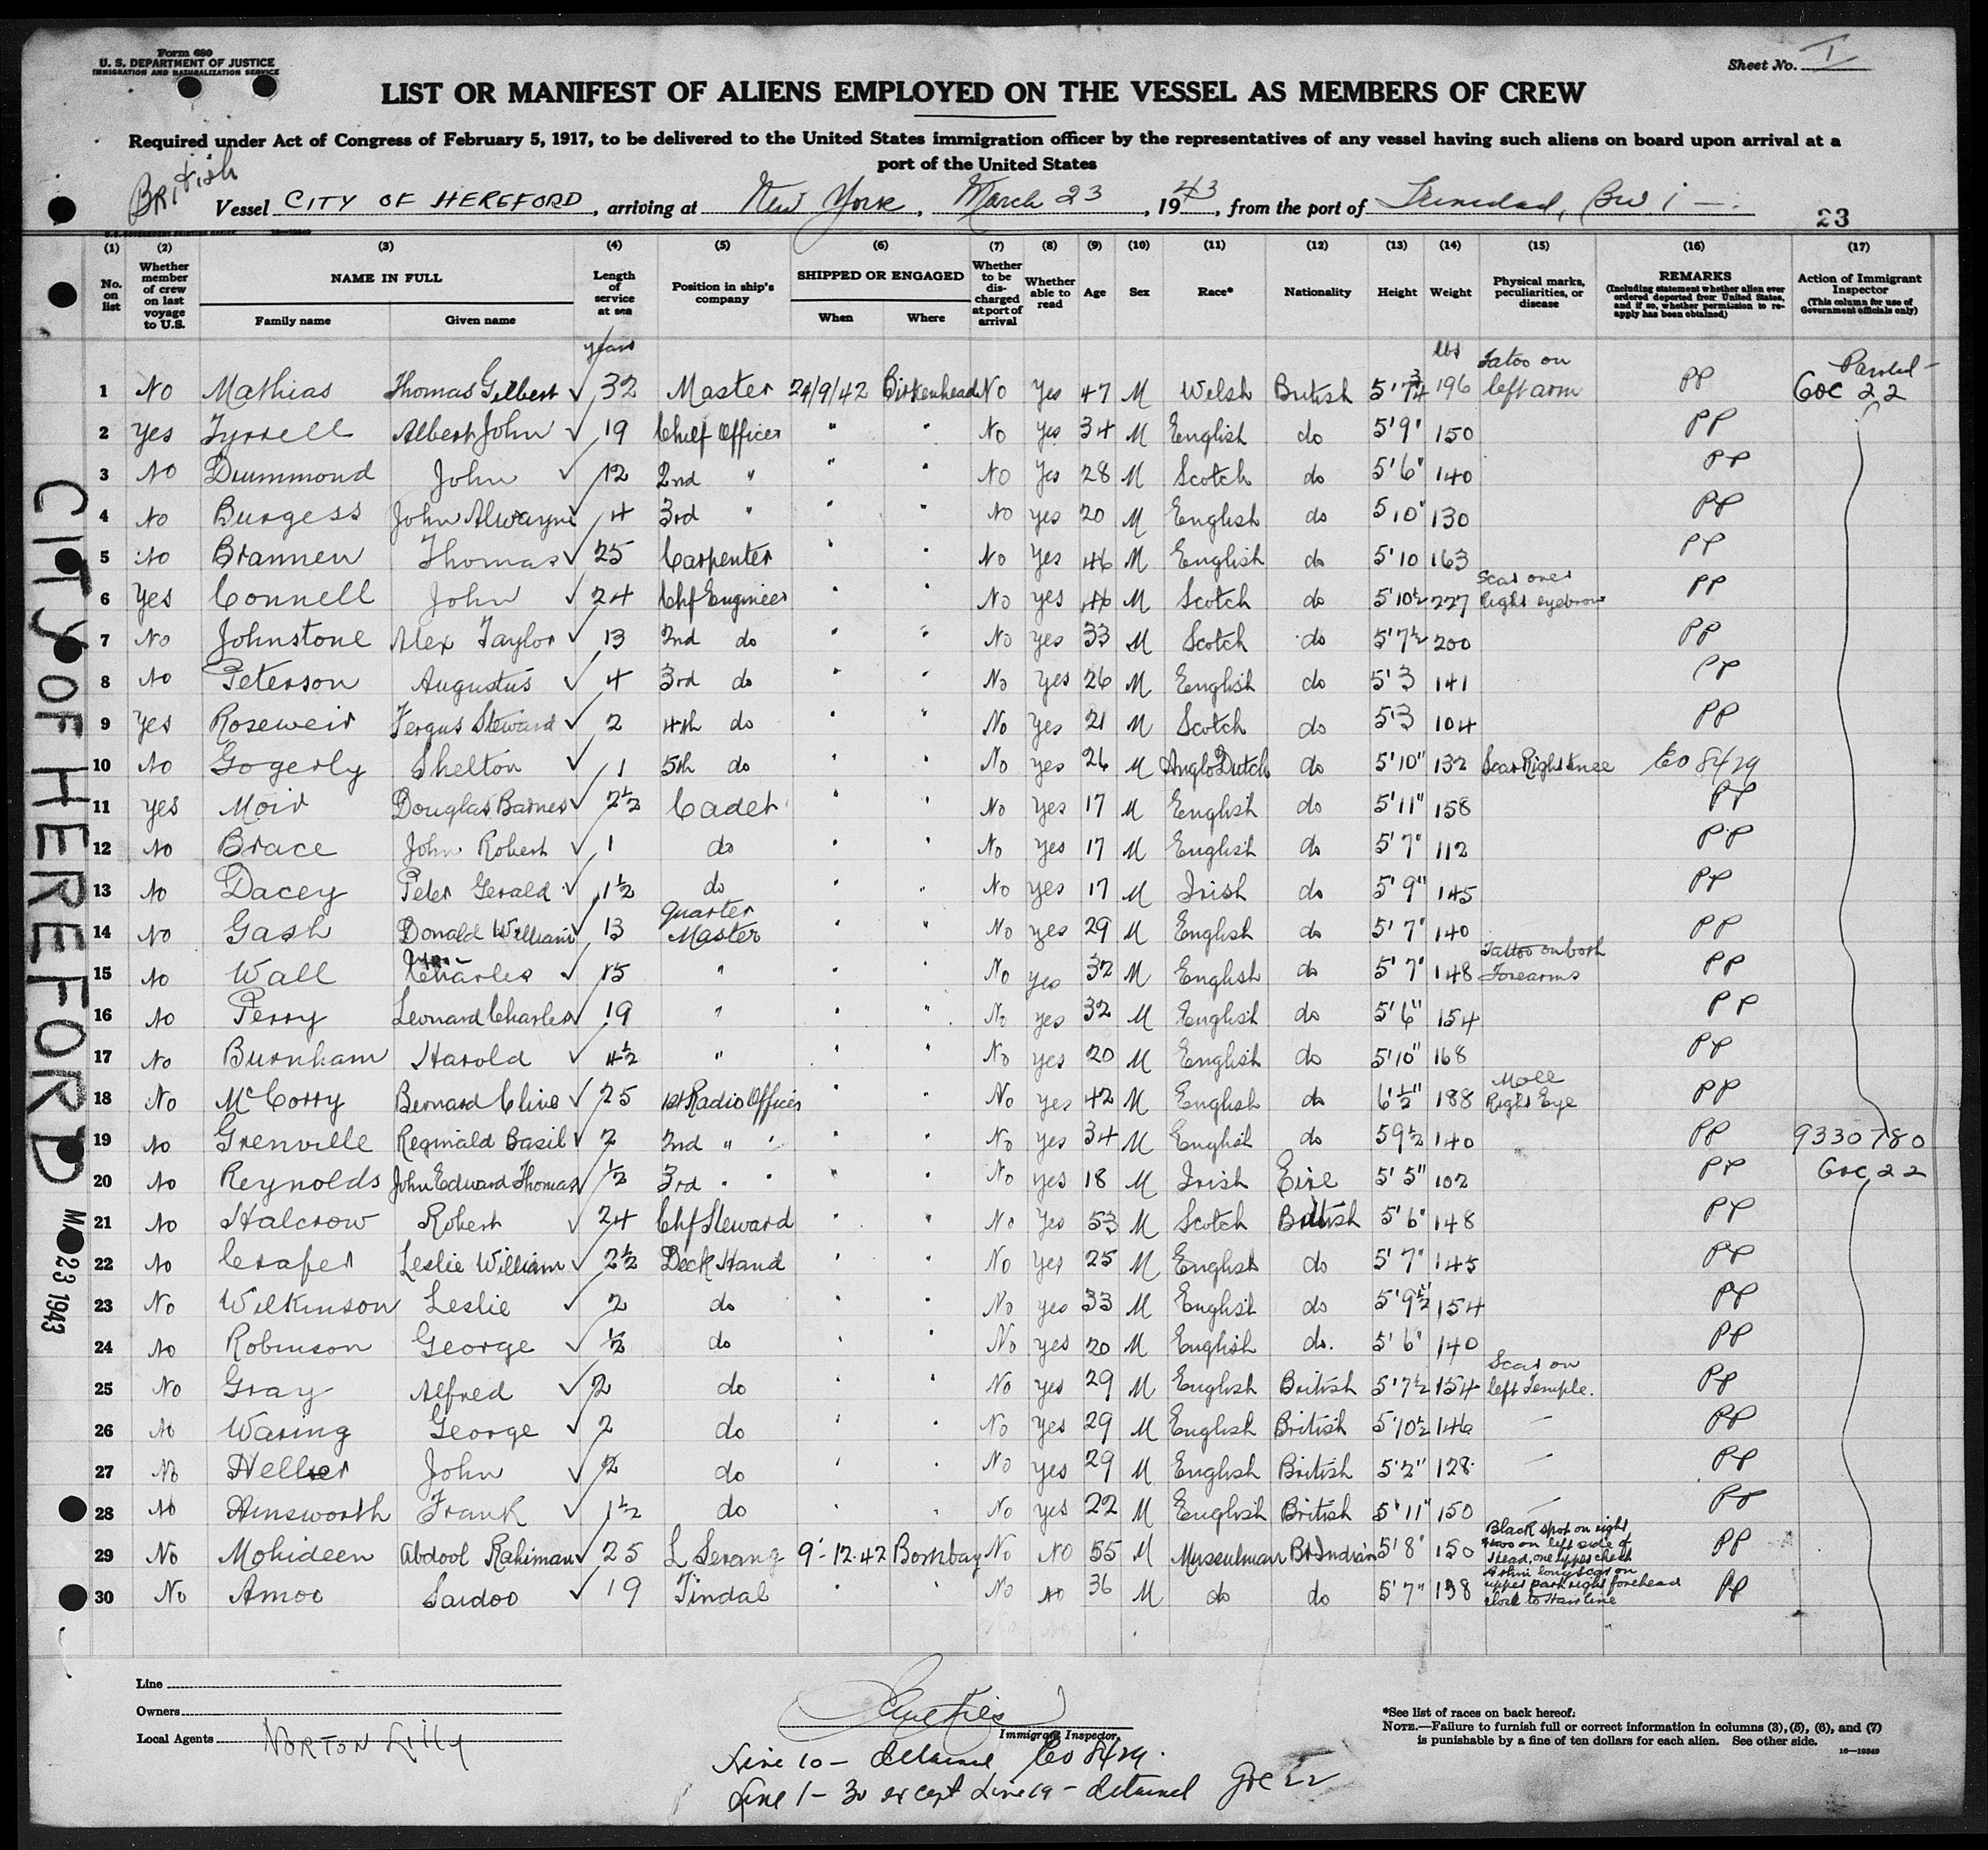 Form 680
U. S. DEPARTMENT OF JUSTICE
IMMIGRATION AND NATURALIZATION SERVICE
Sheet No. I
LIST OR MANIFEST OF ALIENS EMPLOYED ON THE VESSEL AS MEMBERS OF CREW
Required under Act of Congress of February 5, 1917, to be delivered to the United States immigration officer by the representatives of any vessel having such aliens on board upon arrival at a
port of the United States
British
Vessel CITY OF HEREFORD, arriving at New York, March 23, 1943, from the port of Trinidad, BWI
23
(1) (2) (3) (4) (5) (6) (7) (8) (9) (10) (11) (12) (13) (14) (15) (16) (17)
No. on list
Whether member of crew on last voyage to U.S.
NAME IN FULL
Family name Given name
Length of service at sea
Position in ship's company
SHIPPED OR ENGAGED
When Where
Whether to be discharged at port of arrival
Whether able to read
Age
Sex
Race*
Nationality
Height
Weight
Physical marks, peculiarities, or disease
REMARKS
(Including statement whether alien ever ordered deported from United States, and if so, whether permission to reapply has been obtained)
Action of Immigrant Inspector
(This column for use of Government officials only)
years lbs
1 No Mathias Thomas Gilbert ✓ 32 Master 24/9/42 Birkenhead No Yes 47 M Welsh British 5'7¾ 196 Tatoo on left arm PP GOC 22
2 Yes Tyrrell Albert John ✓ 19 Chief Officer " " No Yes 34 M English do 5'9" 150 PP
3 No Drummond John ✓ 12 2nd " " " No Yes 28 M Scotch do 5'6" 140 PP
4 No Burgess John Alwayne ✓ 4 3rd " " " No Yes 20 M English do 5 10" 130 PP
5 No Brannen Thomas ✓ 25 Carpenter " " No Yes 46 M English do 5'10 163 PP
6 Yes Connell John ✓ 24 Chf Engineer " " No Yes 46 M Scotch do 5'10½ 227 Scar over Right eyebrow PP
7 No Johnstone Alex Taylor ✓ 13 2nd do " " No Yes 33 M Scotch do 5'7½ 200 PP
8 No Peterson Augustus ✓ 4 3rd do " " No Yes 26 M English do 5'3 141 PP
9 Yes Roseweir Fergus Steward ✓ 2 4th do " " No Yes 21 M Scotch do 5'3 104 PP
10 No Gogerly Shelton ✓ 1 5th do " " No Yes 26 M Anglo Dutch do 5'10" 132 Scar Right knee EO 8429
11 Yes Moir Douglas Barnes ✓ 2½ Cadet " " No Yes 17 M English do 5'11" 158 PP
12 No Brace John Robert ✓ 1 do " " No Yes 17 M English do 5'7" 112 PP
13 No Dacey Peter Gerald ✓ 1½ do " " No Yes 17 M Irish do 5'9" 145 PP
14 No Gash Donald William ✓ 13 Quarter Master " " No Yes 29 M English do 5'7" 140 PP
15 No Wall Charles ✓ 15 " " " No Yes 32 M English do 5'7" 148 Tattoo on both Forearms PP
16 No Perry Leonard Charles ✓ 19 " " " No Yes 32 M English do 5'6" 154 PP
17 No Burnham Harold ✓ 4½ " " " No Yes 20 M English do 5'10" 168 PP
18 No McCorry Bernard Clive ✓ 25 1st Radio Officer " " No Yes 42 M English do 6'½" 188 Mole Right Eye PP
19 No Grenville Reginald Basil ✓ 2 2nd " " " " No Yes 34 M English do 5 9½ 140 PP 9330780
20 No Reynolds John Edward Thomas ✓ ½ 3rd " " " " No Yes 18 M Irish Eire 5'5" 102 PP GOC 22
21 No Halcrow Robert ✓ 24 Chf Steward " " No Yes 53 M Scotch British 5'6" 148 PP
22 No Crafer Leslie William ✓ 2½ Deck Hand " " No Yes 25 M English do 5'7" 145 PP
23 No Wilkinson Leslie ✓ 2 do " " No Yes 33 M English do 5'9½ 154 PP
24 No Robinson George ✓ ½ do " " No Yes 20 M English do. 5'6" 140 PP
25 No Gray Alfred ✓ 2 do " " No Yes 29 M English British 5'7½ 154 Scar on left Temple. PP
26 No Waring George ✓ 2 do " " No Yes 29 M English British 5'10½ 146 — PP
27 No Hellier John ✓ 2 do " " No Yes 29 M English British 5'2" 128 — PP
28 No Ainsworth Frank ✓ 1½ do " " No Yes 22 M English British 5'11" 150 — PP
29 No Mohideen Abdool Rahiman ✓ 25 L Serang 9-12-42 Bombay No No 55 M Mussulman Br Indian 5'8" 150 Black spot on right on left side of head, one upper cheek PP
30 No Amoo Saidoo ✓ 19 Tindal " " No No 36 M do do 5'7" 138 long scar on upper part right forehead close to Hair line PP
CITY OF HEREFORD
MAR 23 1943
Line
Owners
Local Agents NORTON LILLY
Immigrant Inspector.
Line 10 - detained EO 8429.
Line 1 - 30 except Line 19 - detained GOC 22
*See list of races on back hereof.
NOTE.—Failure to furnish full or correct information in columns (3), (5), (6), and (7)
is punishable by a fine of ten dollars for each alien. See other side.
16—19349